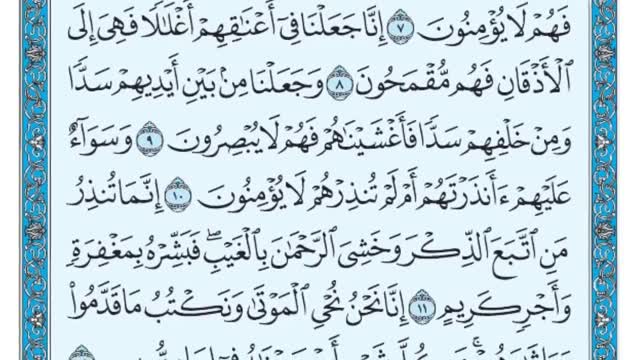 فَهُمْ لَا يُؤْمِنُونَ ٧ إِنَّا جَعَلْنَا فِىٓ أَعْنَٰقِهِمْ أَغْلَٰلًا فَهِىَ إِلَى
ٱلْأَذْقَانِ فَهُم مُّقْمَحُونَ ٨ وَجَعَلْنَا مِنۢ بَيْنِ أَيْدِيهِمْ سَدًّا
وَمِنْ خَلْفِهِمْ سَدًّا فَأَغْشَيْنَٰهُمْ فَهُمْ لَا يُبْصِرُونَ ٩ وَسَوَآءٌ
عَلَيْهِمْ ءَأَنذَرْتَهُمْ أَمْ لَمْ تُنذِرْهُمْ لَا يُؤْمِنُونَ ١٠ إِنَّمَا تُنذِرُ
مَنِ ٱتَّبَعَ ٱلذِّكْرَ وَخَشِىَ ٱلرَّحْمَٰنَ بِٱلْغَيْبِ ۖ فَبَشِّرْهُ بِمَغْفِرَةٍ
وَأَجْرٍ كَرِيمٍ ١١ إِنَّا نَحْنُ نُحْىِ ٱلْمَوْتَىٰ وَنَكْتُبُ مَا قَدَّمُوا۟